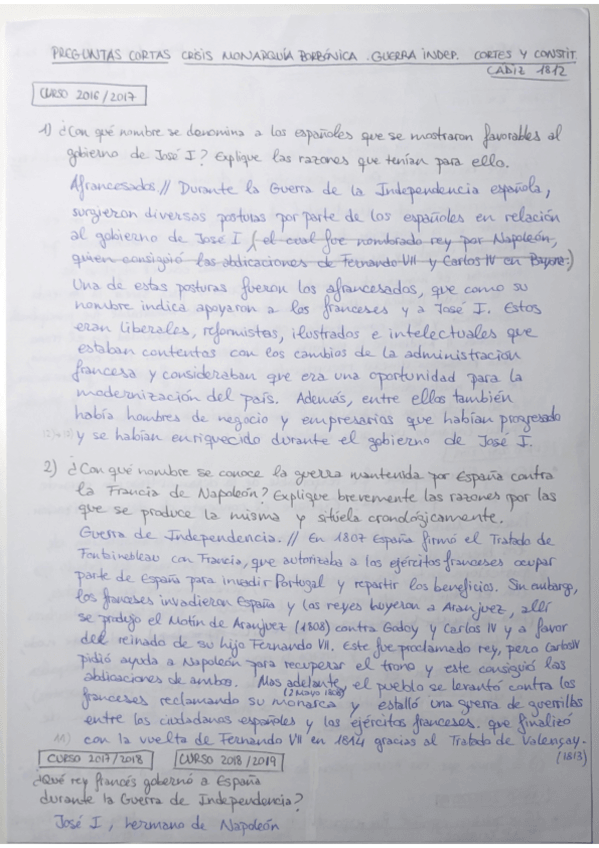 PREGUNTAS CORTAS CRISIS MONARQUÍA BORBÓNICA. GUERRA INDEP. CORTES Y CONSTIT.
CÁDIZ 1812
CURSO 2016/2017
1) ¿Con qué nombre se denomina a los españoles que se mostraron favorables al
gobierno de José I? Explique las razones que tenían para ello.
Afrancesados // Durante la Guerra de la Independencia española,
surgieron diversas posturas por parte de los españoles en relación
al gobierno de José I (el cual fue nombrado rey por Napoleón,
quien consiguió las abdicaciones de Fernando VII y Carlos IV en Bayona.)
Una de estas posturas fueron los afrancesados, que como su
nombre indica apoyaron a los franceses y a José I. Estos
eran liberales, reformistas, ilustrados e intelectuales que
estaban contentos con los cambios de la administración
francesa y consideraban que era una oportunidad para la
modernización del país. Además, entre ellos también
había hombres de negocio y empresarios que habían progresado
y se habían enriquecido durante el gobierno de José I.
2) ¿Con qué nombre se conoce la guerra mantenida por España contra
la Francia de Napoleón? Explique brevemente las razones por las
que se produce la misma y sitúela cronológicamente.
Guerra de Independencia. // En 1807 España firmó el Tratado de
Fontainebleau con Francia, que autorizaba a los ejércitos franceses ocupar
parte de España para invadir Portugal y repartir los beneficios. Sin embargo,
los franceses invadieron España y los reyes huyeron a Aranjuez, allí
se produjo el Motín de Aranjuez (1808) contra Godoy y Carlos IV y a favor
del reinado de su hijo Fernando VII. Este fue proclamado rey, pero Carlos IV
pidió ayuda a Napoleón para recuperar el trono y este consiguió las
abdicaciones de ambos. Mas adelante, el pueblo se levantó contra los
(2 Mayo 1808)
franceses reclamando su monarca y estalló una guerra de guerrillas
entre los ciudadanos españoles y los ejércitos franceses. que finalizó
con la vuelta de Fernando VII en 1814 gracias al Tratado de Valençay.
(1813)
11)
CURSO 2017/2018 CURSO 2018/2019
¿Qué rey francés gobernó a España
durante la Guerra de Independencia?
José I, hermano de Napoleón